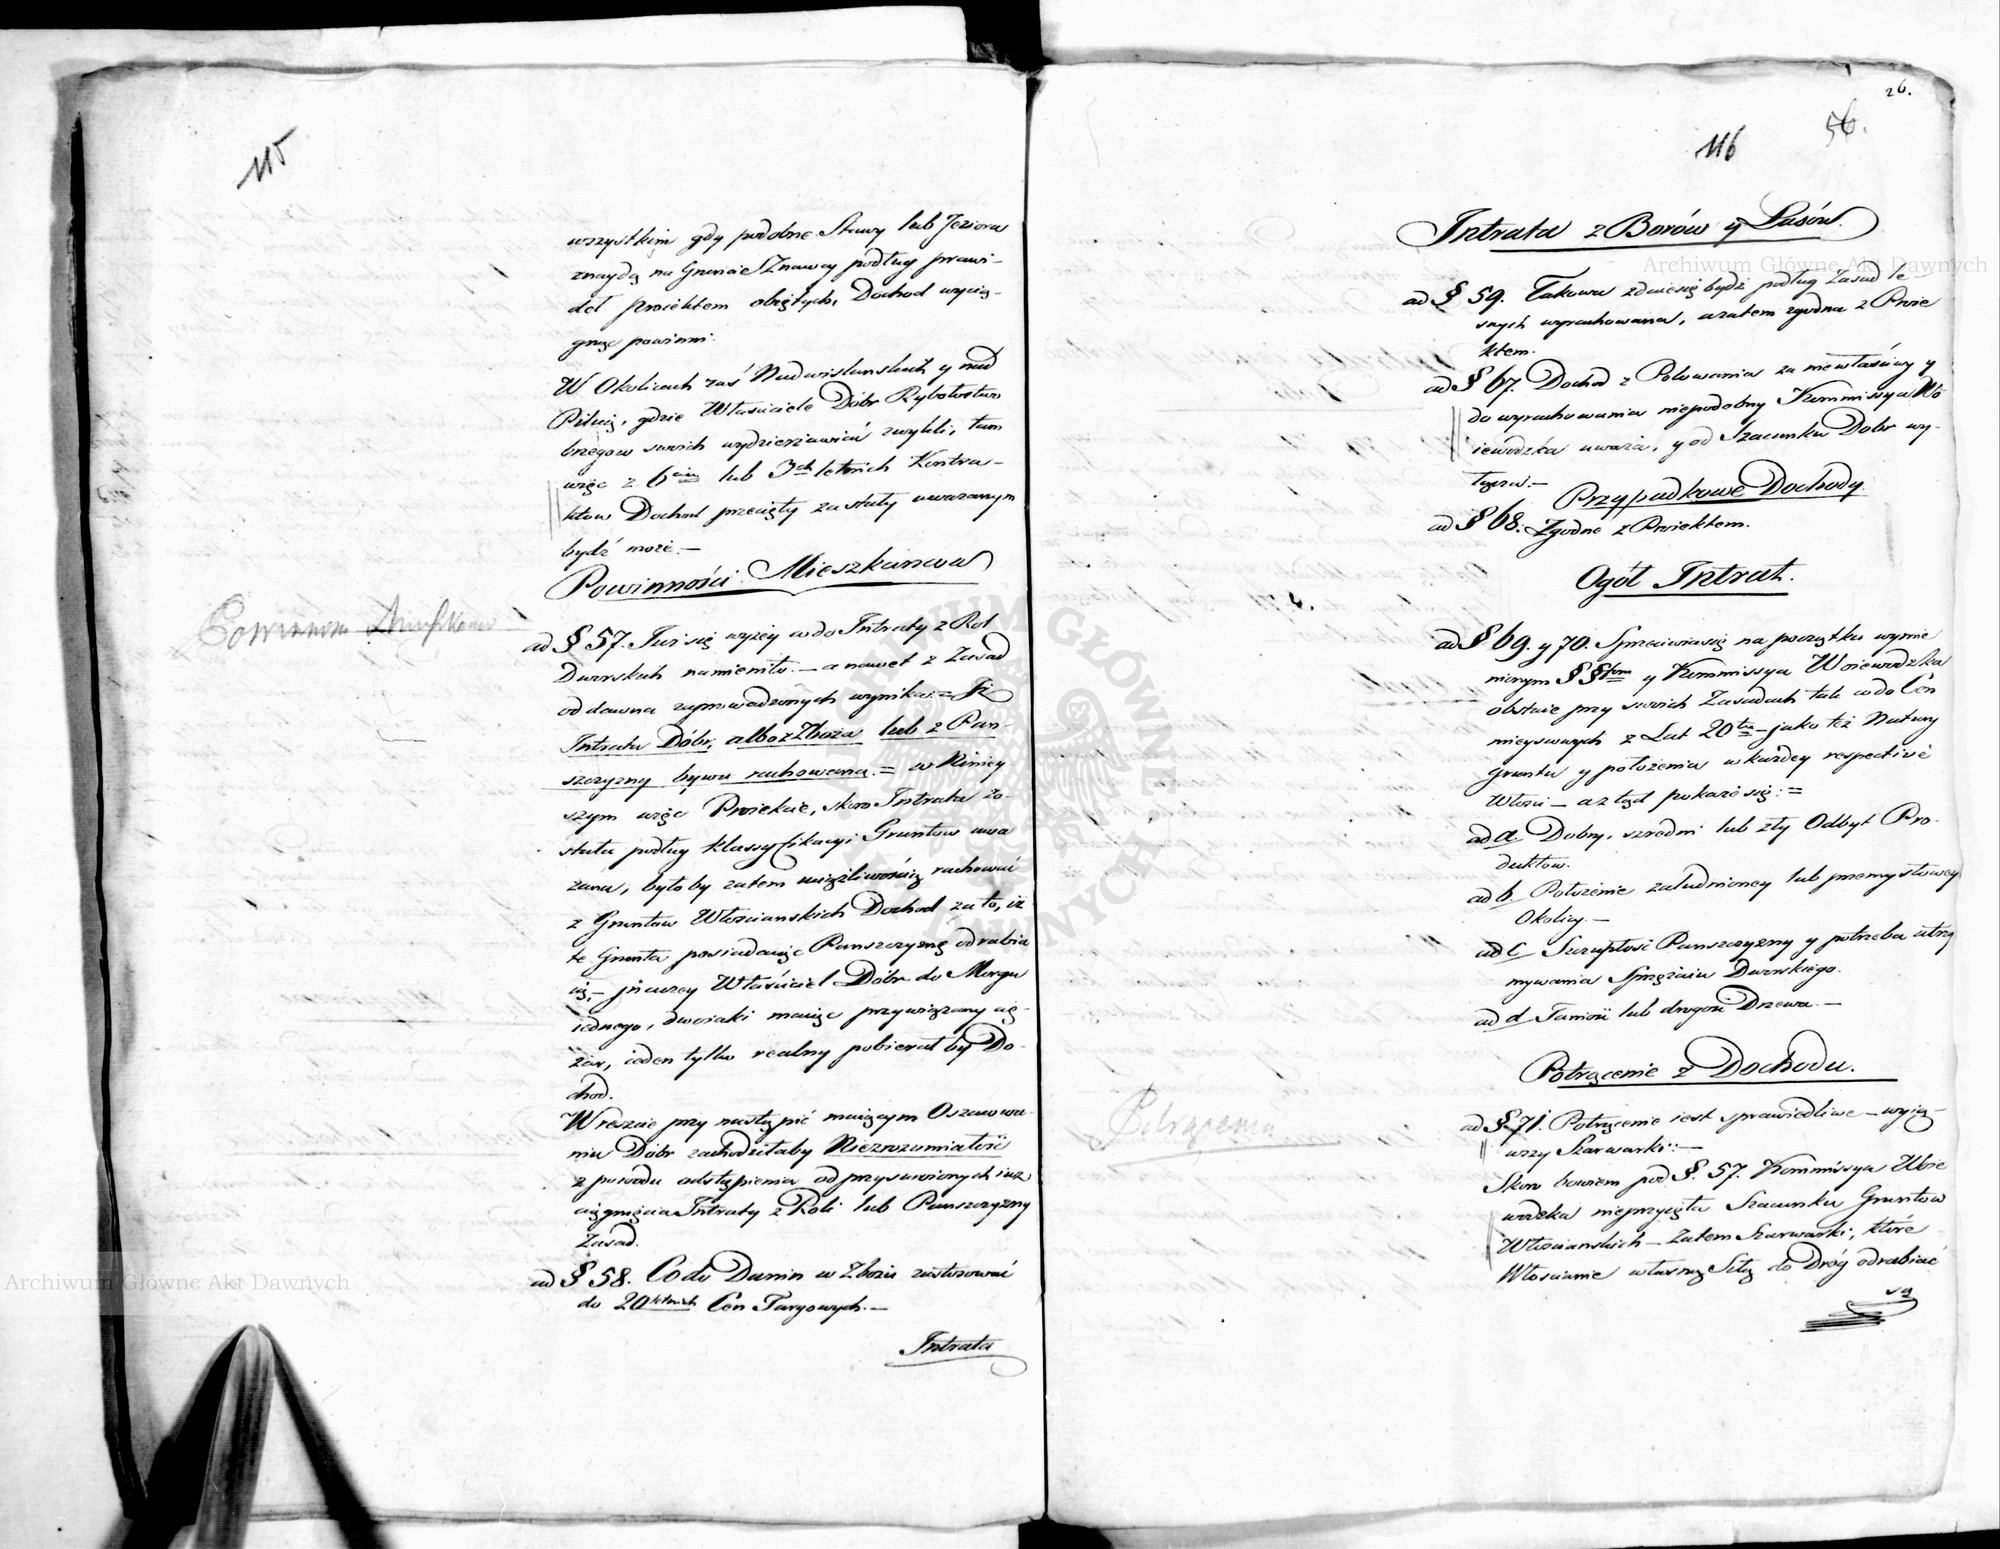 115
wszystkim gdy podobne Stawy lub Jeziora
znaydą na Gruncie Znawcy podług prawi-
deł proiektem obiętych, Dochod wycią-
gnąć powinni.
W Okolicach zaś Nadwislanskich y nad
Pilicą, gdzie Właściciele Dóbr Rybołostwo
brzegow swoich wydzierżawiać zwykli, tam
więc z 6cio lub 3ch letnich Kontra-
ktow Dochod przecięty za stały uważanym
bydź może.—
Powinności Mieszkancow
Powinności Mieszkancow
ad § 57. Już się wyżey co do Intraty z Rol
Dworskich namieniło.— a nawet z Zasad
od dawna zaprowadzonych wynika = Iż
Intrata Dóbr, albo z Zboża lub z Pan-
szczyzny bywa rachowana. = w Niniey-
szym więc Proiekcie, skoro Intrata zo-
stała podług klassyfikacyi Gruntow uwa
żana, byłoby zatem uciążliwością rachować
z Gruntow Włościanskich Dochod za to, iż
te Grunta posiadaiąc Panszczyznę odrabia
ią,— inaczey Właściciel Dóbr do Morgu
iednego, dwoiaki maiąc przywiązany cię-
żar, ieden tylko realny pobierał by Do-
chod.
Wreszcie przy nastąpić maiącym Oszacowa-
niu Dóbr zachodziłaby Niezrozumiałość
z powodu odstąpienia od przyswoionych
ciągnięcia Intraty z Roli lub Panszczyzny
Zasad.
ad § 58. Co do Danin w Zbożu zastosować
do 20 letnich Cen Targowych.—
Intrata
26.
56.
116
Intrata z Borów y Lasów.
ad § 59. Takowa zdaie się bydź podług Zasad le-
snych wyrachowana, a zatem zgodna z Proie
ktem.
ad § 67. Dochod z Polowania za niewłaściwy y
do wyrachowania niepodobny Kommissya Wo
iewodzka uważa, y od Szacunku Dobr wy-
łącza.—
Przypadkowe Dochody
ad § 68. Zgodne z Proiektem.
Ogół Intrat.
ad § 69. y 70. Sprzeciwia się na początku wymie
nionym § §fom y Kommissya Woiewodzka
obstaie przy swoich Zasadach tak co do Cen
mieyscowych z Lat 20tu — jako też Natury
Gruntu y położenia w każdey respective
Włości — a z tąd pokaże się: =
ad a. Dobry, szredni lub zły Odbyt Pro-
duktow.
ad b. Położenie zaludnioney lub przemysłowey
Okolicy.—
ad c. Szczupłość Panszczyzny y potrzeba utrzy
mywania Sprzężaiu Dworskiego.
ad d. Taniość lub drogość Drzewa.—
Potrącenie z Dochodu.
Potrącenia
ad § 71. Potrącenie iest sprawiedliwe — wyią-
wszy Szarwarki:—
Skoro bowiem pod §. 57. Kommissya Woie
wodzka nieprzyięła Szacunku Gruntow
Włościanskich — Zatem Szarwarki, które
Włościanie własną Siłą do Dróg odrabiać
są
Archiwum Główne Akt Dawnych
Archiwum Główne Akt Dawnych
ARCHIWUM GŁÓWNE AKT DAWNYCH